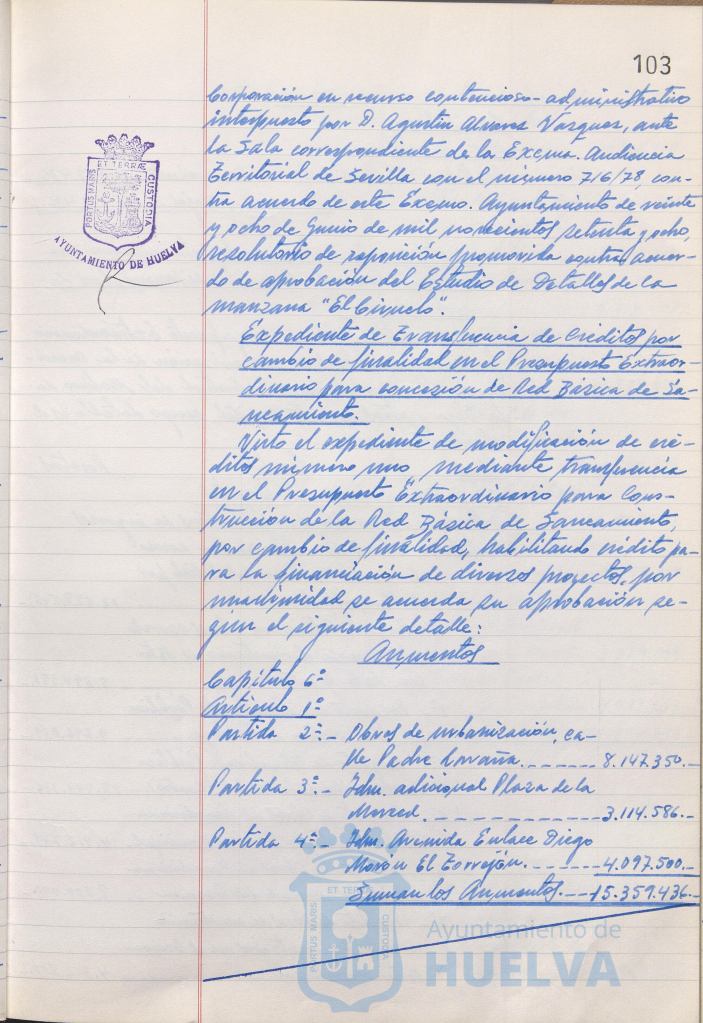 103
Corporación en recurso contencioso-administrativo
interpuesto por D. Agustín Alvarez Vazquez, ante
la Sala correspondiente de la Excma. Audiencia
Territorial de Sevilla con el número 716/78, con-
tra acuerdo de este Excmo. Ayuntamiento de veinte
y ocho de Junio de mil novecientos setenta y ocho,
resolutorio de reposición promovida contra acuer-
do de aprobación del Estudio de Detalles de la
manzana "El Ciruelo".
Expediente de Transferencia de Créditos por
cambio de finalidad en el Presupuesto Extraor-
dinario para concesión de Red Básica de Sa-
neamiento.
Visto el expediente de modificación de cré-
ditos número uno mediante transferencia
en el Presupuesto Extraordinario para Cons-
trucción de la Red Básica de Saneamiento,
por cambio de finalidad, habilitando crédito pa-
ra la financiación de diversos proyectos, por
unanimidad se acuerda su aprobación se-
gun el siguiente detalle:
Aumentos
Capítulo 6º
Artículo 1º
Partida 2ª.- Obras de urbanización, ca-
lle Padre Marañá. 8.147.350.-
Partida 3ª.- Idm. adicional Plaza de la
Merced. 3.114.586.-
Partida 4ª.- Idm. Avenida Enlace Diego
Morón El Torrejón. 4.097.500.-
Suman los Aumentos. 15.359.436.-
PORTUS MARIS ET TERRÆ CUSTODIA
AYUNTAMIENTO DE HUELVA
PORTUS MARIS ET TERRÆ CUSTODIA
Ayuntamiento de
HUELVA